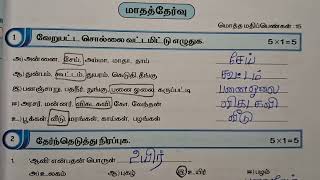 மாதத்தேர்வு
மொத்த மதிப்பெண்கள் :15
1 வேறுபட்ட சொல்லை வட்டமிட்டு எழுதுக. 5×1=5
அ) அன்னை, சேய், அம்மா, மாதா, தாய் சேய்
ஆ) துன்பம், கூட்டம், துயரம், கெடுதி, தீங்கு கூட்டம்
இ) பனஞ்சாறு, பதநீர், நுங்கு, பனை ஓலை, கருப்பட்டி பனை ஓலை
ஈ) அரசர், மன்னர், விகடகவி, கோ, வேந்தன் விகடகவி
உ) பூக்கள், வீடு, மரங்கள், காய்கள், பழங்கள் வீடு
2 தேர்ந்தெடுத்து நிரப்புக. 5×1=5
1. ஆவி என்பதன் பொருள் உயிர்
அ) உலகம் ஆ) புகழ் இ) உயிர் ஈ) பழம்